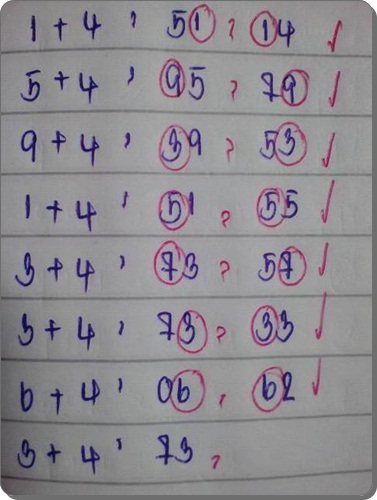 1 + 4 , 51 ? 14 ✓
5 + 4 , 95 ? 79 ✓
9 + 4 , 39 ? 53 ✓
1 + 4 , 51 ? 55 ✓
3 + 4 , 73 ? 57 ✓
3 + 4 , 73 ? 33 ✓
6 + 4 , 06 , 62 ✓
3 + 4 , 73 ,